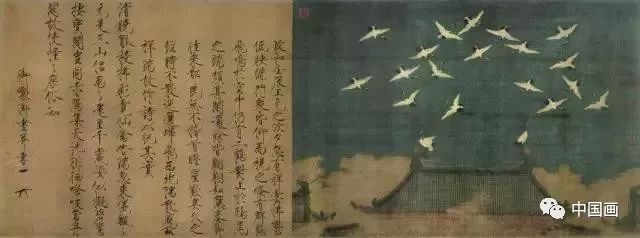 政和壬辰上元之次夕忽有祥雲拂鬱
低映端門眾皆仰而視之倏有群鶴
飛鳴於空中仍有二鶴對止於鴟尾
之端頗甚閑適餘皆翱翔如應奏節
往來都民無不稽首瞻望歎異久之
經時不散迤邐歸飛西北隅散感茲
祥瑞故作詩以紀其實
清曉觚稜拂彩霓仙禽告瑞忽來儀飄飄
元是三山侶兩兩還呈千歲姿似擬碧鸞
棲寶閣豈同赤雁集天池徘徊嘹唳當丹
闕故使憧憧庶俗知
御製御畫并書
中国画